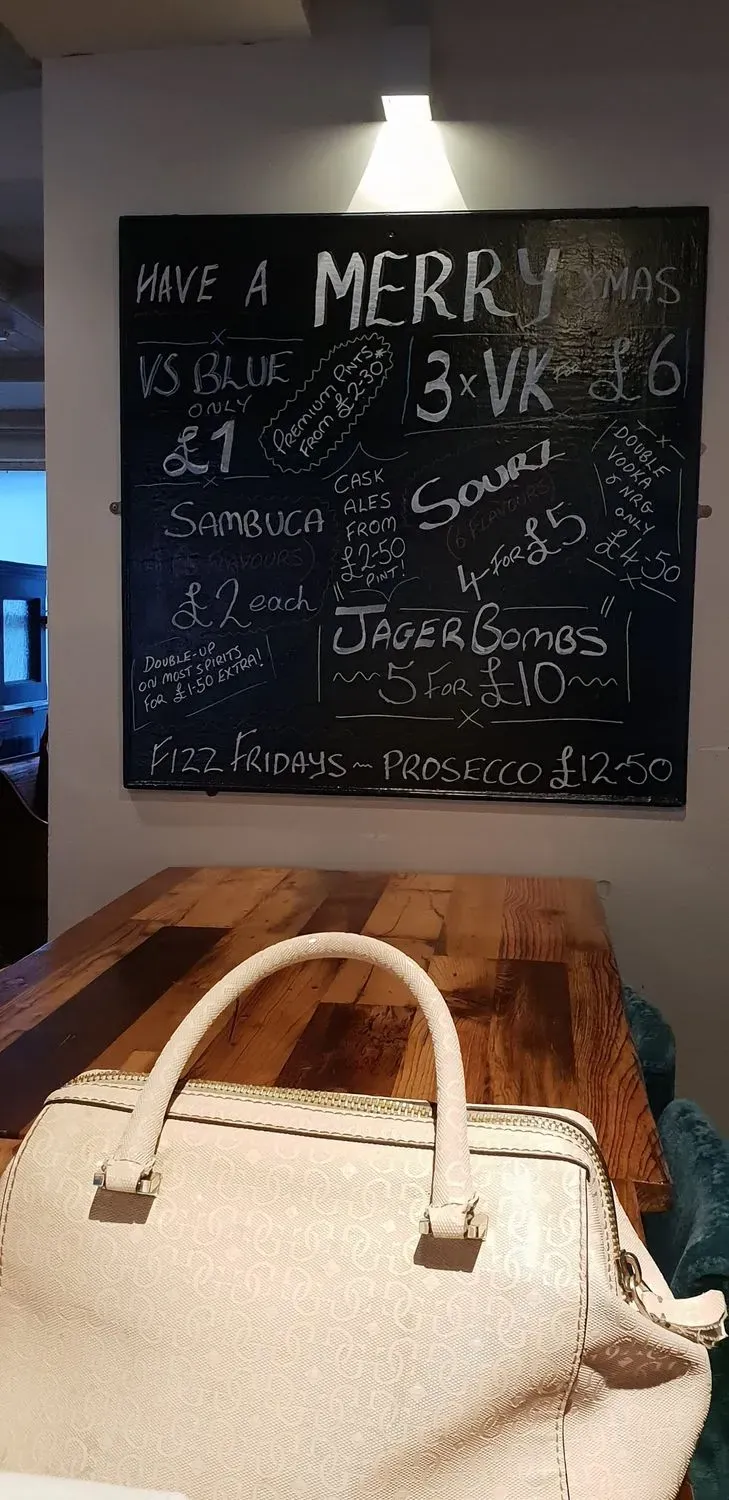 HAVE A MERRY XMAS
VS BLUE
ONLY
£1
PREMIUM PINTS*
FROM £2-30
3 x VK FOR £6
SAMBUCA
FLAVOURS)
£2 each
CASK
ALES
FROM
£2-50
PINT!
SOURZ
(6 FLAVOURS)
4 FOR £5
DOUBLE
VODKA
& NRG
ONLY
£4-50
DOUBLE-UP
ON MOST SPIRITS
FOR £1-50 EXTRA!
"JAGERBOMBS"
5 FOR £10
FIZZ FRIDAYS ~ PROSECCO £12-50